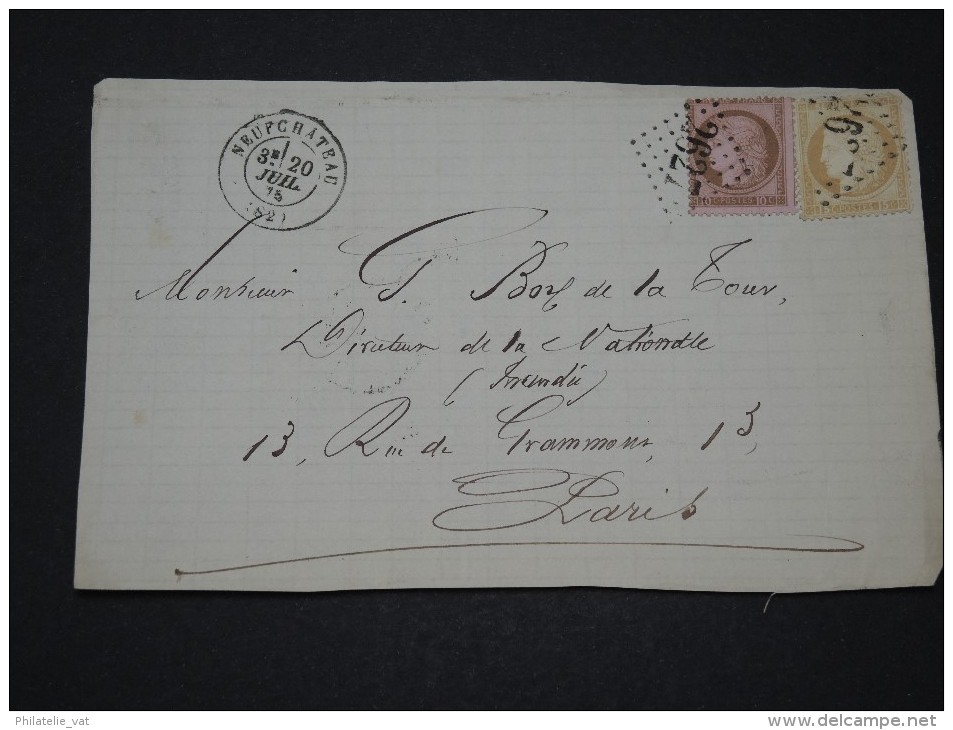 NEUFCHATEAU
3E 20
JUIL.
75
(82)
2621
10 C POSTES 10 C
15 C POSTES 15 C
Monsieur G. de la Tour,
Directeur de la Nationale
(Incendie)
13, Rue de Grammont, 13,
Paris
Philatelie_vat
www.delcampe.net